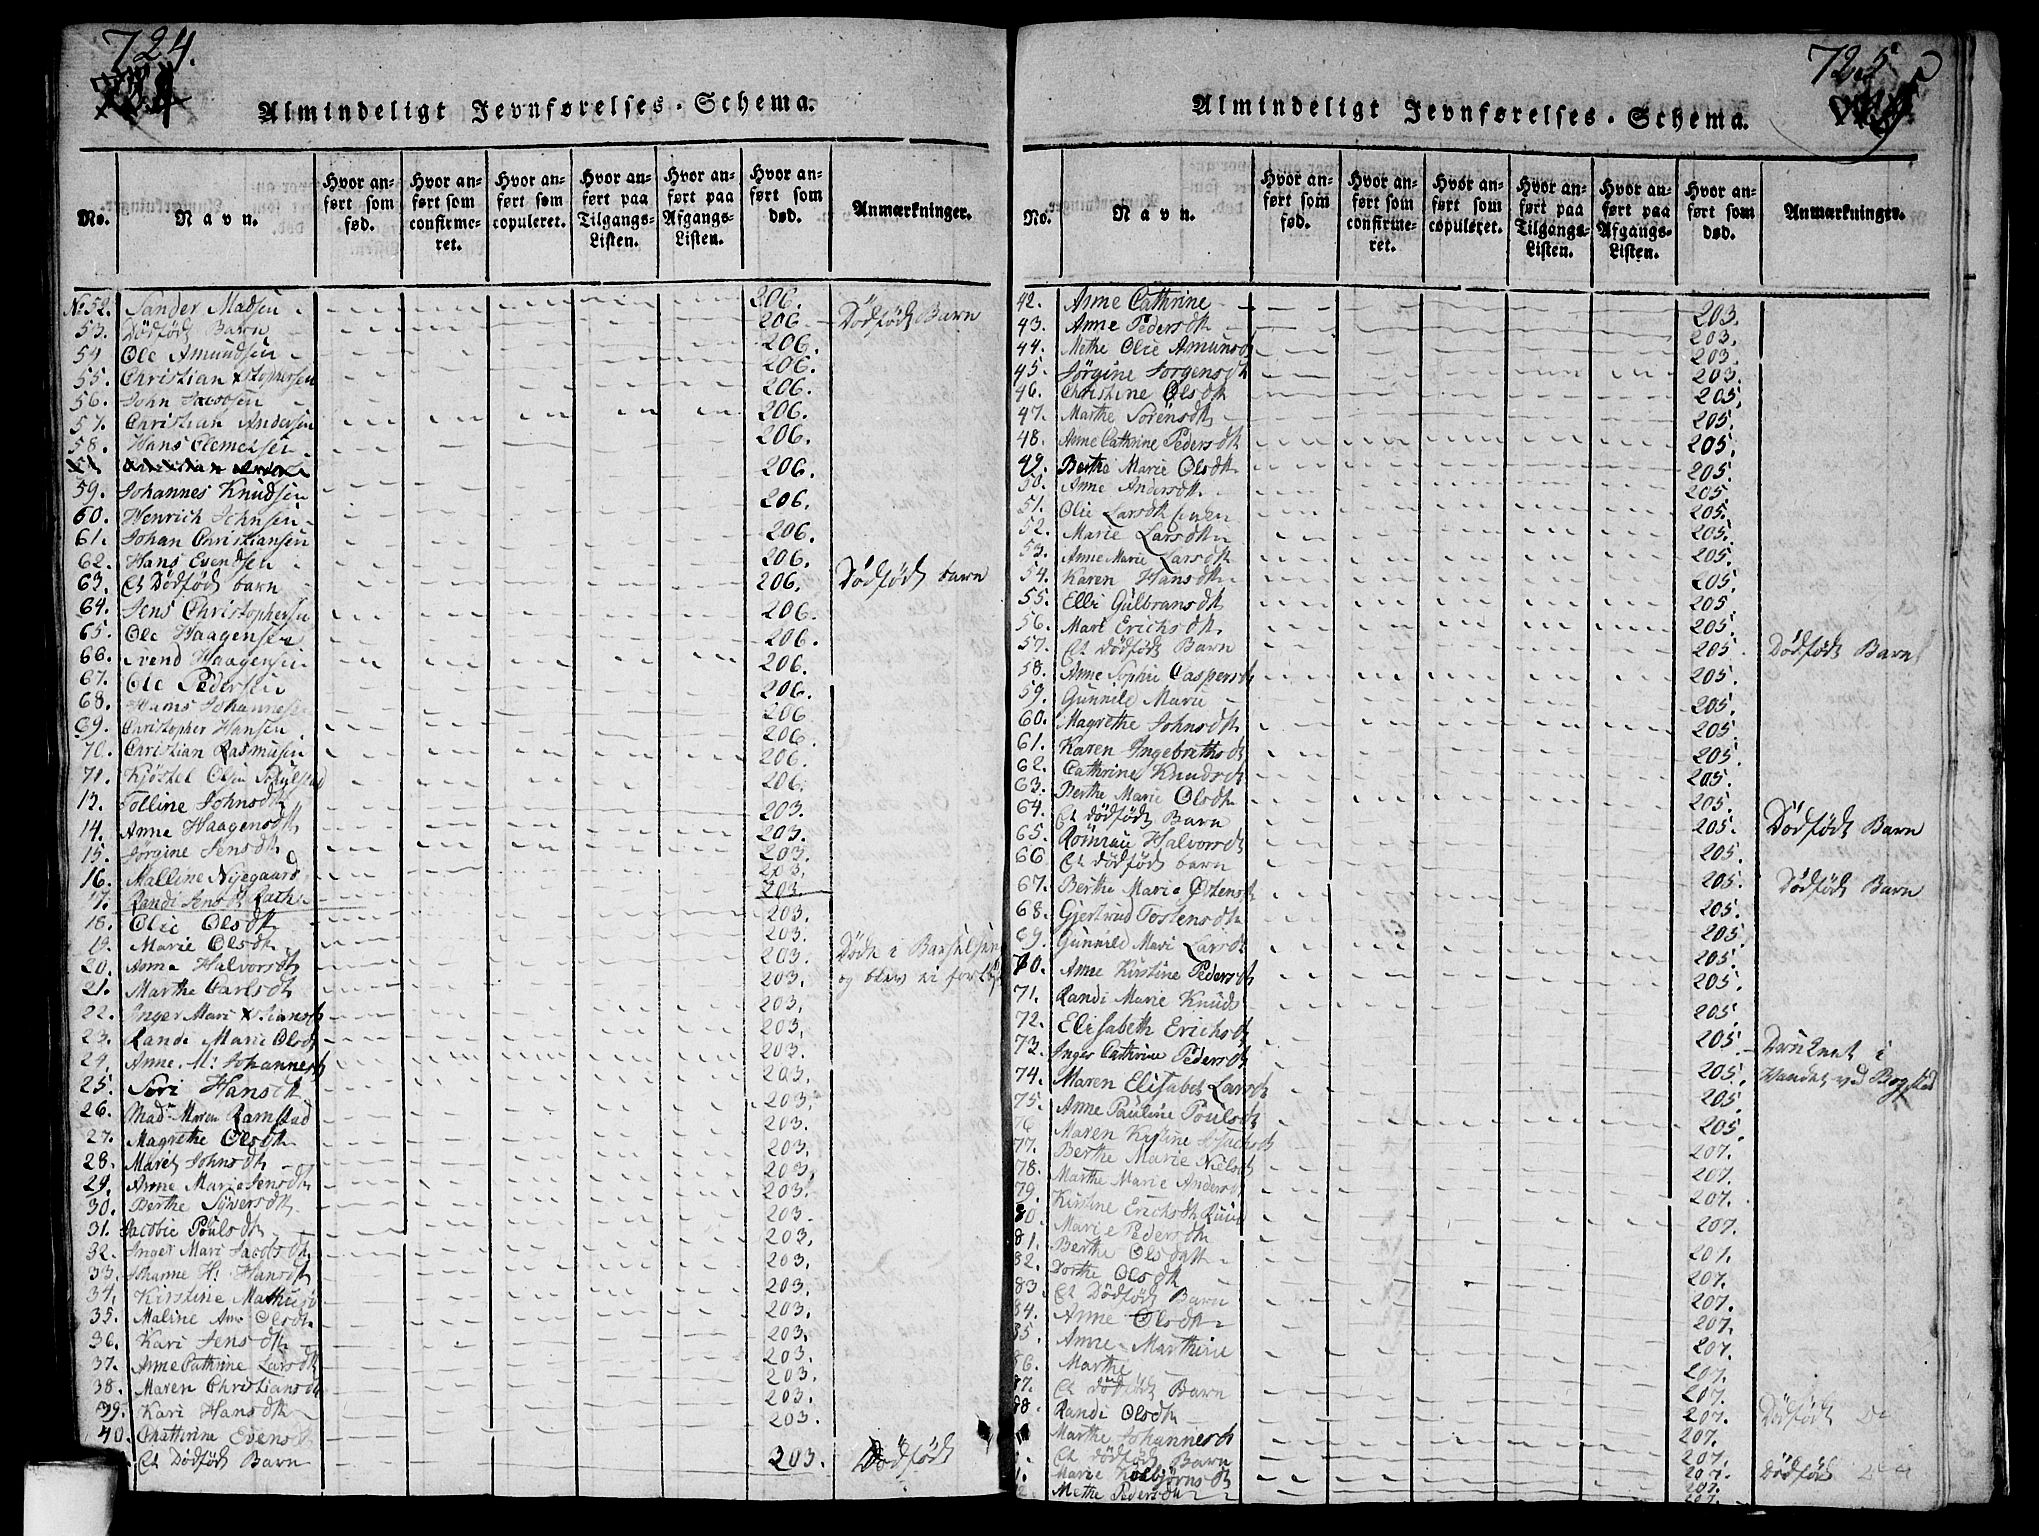 724.
Almindeligt Jevnførelses-Schema.
No.
Navn.
Hvor anført som fød.
Hvor anført som confirmeret.
Hvor anført som copuleret.
Hvor anført paa Tilgangs-Listen.
Hvor anført paa Afgangs-Listen.
Hvor anført som død.
Anmærkninger.
No 52. Sander Madsen 206.
53. Dödfödt Barn 206 Dödfödt Barn
54 Ole Amundsen 206.
55. Christian Xstophersen 206
56. John Jacobsen 206
57. Christian Andersen 206.
58. Hans Clemetsen 206.
59. Johannes Knudsen 206.
60. Henrich Johnsen 206.
61. Johan Christiansen 206.
62. Hans Evendsen 206.
63. Et Dödfödt barn 206. Dödfödt barn
64. Jens Christophersen 206.
65. Ole Haagensen 206.
66. Svend Haagensen 206.
67. Ole Pedersen 206.
68. Hans Johannesen 206
69. Christopher Hansen 206.
70. Christian Rasmusen 206.
71. Kjöstel Olsen 206.
13. Tolline Johnsdt 203.
14. Anne Haagensdt 203.
15. Jörgine Jensdt 203.
16. Malline Nijegaard 203.
17. Randi Jensdt Rath 203.
18. Olie Olsdt 203.
19. Marie Olsdt 203.
20. Anne Halvorsdt 203. Död i Barselseng
21. Marthe Carlsdt 203. og blev ei
22. Inger Mari 203.
23. Randi Marie Olsdt 203.
24. Anne M: Johannesdt 203.
25. Siri Hansdt 203.
26. Mad: Maren Ramstad 203.
27. Magrethe Olsdt 203.
28. Maret Johnsdt 203.
29. Anne Marie Jensdt 203.
30. Berthe Syversdt 203.
31. Jacobie Poulsdt 203.
32. Inger Mari Jacobsdt 203.
33. Johanne H: Hansdt 203.
34. Kirstine 203.
35. Maline Ane Olsdt 203.
36. Kari Jensdt 203.
37. Anne Cathrine Larsdt 203.
38. Maren Christiansdt 203.
39. Kari Hansdt 203.
40. Chatherine Evensdt 203.
Et Dödfödt Barn 203. Dödfödt
725
Almindeligt Jevnførelses-Schema.
No.
Navn.
Hvor anført som fød.
Hvor anført som confirmeret.
Hvor anført som copuleret.
Hvor anført paa Tilgangs-Listen.
Hvor anført paa Afgangs-Listen.
Hvor anført som død.
Anmærkninger.
42. Anne Cathrine 203.
43. Anne Pedersdt 203.
44. Methe Olie Amunsdt 203.
45. Jörgine Jorgensdt 203.
46. Christine Olsdt 205.
47. Marthe Sorensdt 205.
48. Anne Cathrine Pedersdt 205.
49. Berthe Marie Olsdt 205.
50. Anne Andersdt 205.
51. Olie Larsdt 205.
52. Marie Larsdt 205.
53. Anne Marie Larsdt 205.
54. Karen Hansdt 205.
55. Elli Gulbransdt 205.
56. Mari Erichsdt 205.
57. Et dödfödt Barn 205 Dödfödt Barn
58. Anne Sophie Caspersdt 205.
59. Gunnild Marie 205.
60. Magrethe Johnsdt 205.
61. Karen Ingebrethsdt 205.
62. Cathrine Knudsdt 205.
63. Berthe Marie Olsdt 205.
64. Et dödfödt Barn 205. Dödfödt Barn
65. Halvorsdt 205.
66. Et dödfödt barn 205. Dödfödt Barn
67. Berthe Marie Östensdt 205.
68. Gjertrud Tostensdt 205.
69. Gunnild Mari Larsdt 205.
70. Anne Kirstine Pedersdt 205.
71. Randi Marie Knuds 205.
72. Elisabeth Erichsdt 205. Druknet i
73. Inger Cathrine Pedersdt 205. Vandet ved Bogstad
74. Maren Elisabet Larsdt 205.
75. Anne Pauline Poulsdt 205.
76 Maren Kistine Isachsdt 207.
77. Berthe Marie Nielsdt 207.
78. Marthe Marie Andersdt 207.
79. Kirstine Erichsdt Ruud 207.
80. Marie Pedersdt 207.
81. Berthe Olsdatt 207.
82. Dorthe Olsdt 207.
83 Et Dödfödt Barn 207.
84. Anne Olsdt 207.
85. Anne Marthine 207.
86. Marthe 207.
87. Et dödfödt Barn 207. Dödfödt
88. Randi Olsdt 207.
Marthe Johannesdt 207.
Et dödfödt Barn 207. Dödfödt
Marie Kolbjörnsdt
Methe Pedersdt 207.